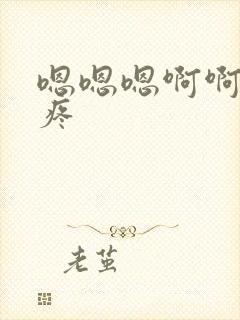 嗯嗯嗯啊啊
疼
老茧